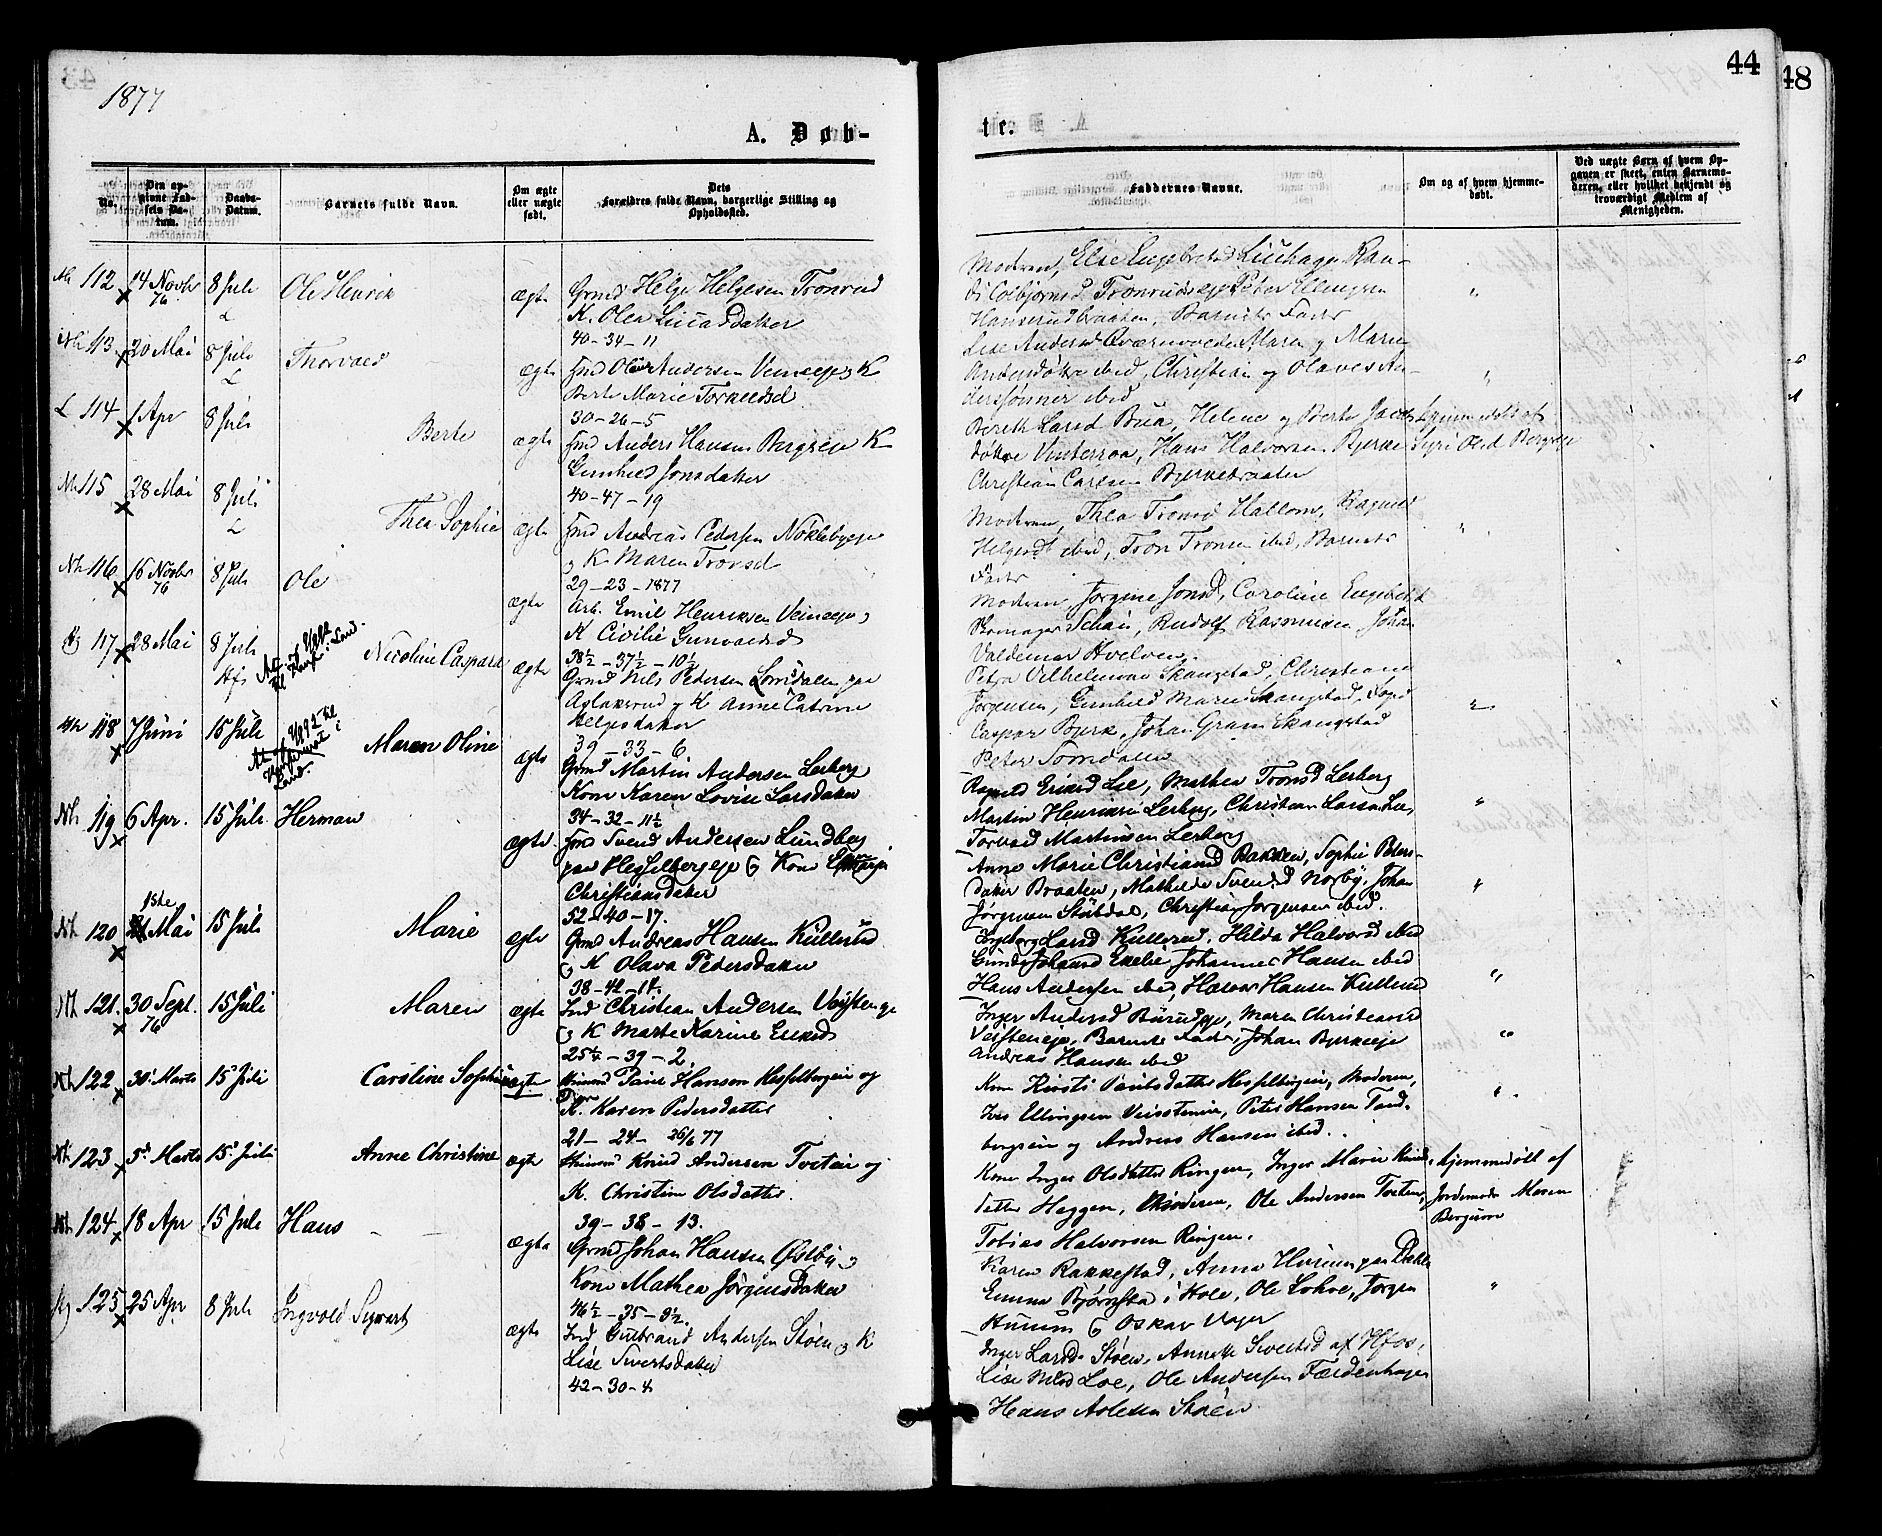 1877
44
48
A. Døb-
te.
No.
Den op-
givne Fød-
sels Da-
tum.
Daabs-
Datum.
Barnets fulde Navn.
Om ægte
eller uægte
født.
Dets
Forældres fulde Navn, borgerlige Stilling og
Opholdssted.
Faddernes Navne.
Om og af hvem hjemme-
døbt.
Ved uægte Børn af hvem Op-
gaven er skeet, enten Barnemo-
deren, eller hvilket bekjendt og
troværdigt Medlem af
Menigheden.
Nh 112 14 Novbr 76 8 Juli Ole Henrik ægte
Grmd Helge Helgesen Tronrud
K. Olea Lucasdatter
40-34-11
Moderen, Else Engebretsd Liuhagen Ran-
di Colbjørnsd Tronrudseje Peder Ellingsen
Hanserudbraaten, Barnets Fader
Nh 113 20 Mai 8 Juli Thorvald ægte
Imd Oluf Andersen Veineeje K
Berte Marie Torkildsd
30-26-5
Lise Andersd Maren og Marie
Andersdøtre ibid, Christian og Olaves An-
derssønner ibid
L 114 1 Apr 8 Juli Berte ægte
Imd Anders Hansen Bergseje K
Gunhild Jonsdatter
40-47-19
Berith Larsd Bua, Helene og Berte Jacobs
døtre Vinterroa, Hans Halvorsen Bjerke
Christian Carlsen Bjerkebraaten
hjemmedøbt af
Siri Olsd Bergseje
Nh 115 28 Mai 8 Juli Thea Sophie ægte
Imd Andreas Pedersen Nöklebyeje
og K Maren Tronsd
29-23-1877
Moderen, Thea Tronsd Hallom, Ragnild
Helgesdt ibid, Tron Tronsen ibid, Barnets
Fader
Nh 116 16 Novbr 76 8 Juli Ole ægte
Arb. Emil Henriksen Veineeje og
K Cicilie Gunvaldsd
38½-37½-10½
Moderen Jörgine Jonsd, Caroline Engebretsd
Skomager Schau, Rudolf Rasmussen, Johan
Valdemar Hvelven.
117 28 Mai 8 Juli Hfs Nicoline Caspara ægte
Grmd Nils Pedersen Somdalen paa
Aslaksrud og K Anne Catrine
Helgesdatter
39-33-6
Petra Vilhelmine Skangstad, Christiane
Jørgensen, Gunhild Marie Skangstad,
Caspar Bjerk, Johan Gram Skangstad
Peter Somdalen
Nh 118 7 Juni 15 Juli Maren Oline ægte
Grmd Martin Andersen Lerberg
Kone Karen Lovise Larsdatter
34-32-11½
Ragnild Eriksd Lee, Mathea Tronsd Lerberg
Martin Henriksen Lerberg, Christian Larsen Lee,
Torvald Martinsen Lerberg
Nh 119 6 Apr. 15 Juli Herman ægte
Imd Svend Andersen Lundberg
paa Hesselbergeje og Kone
Christiansdatter
52-40-17.
Anne Marie Christiansd Bakken, Sophie Peders-
datter Braaten, Mathilde Svendsd Norby, Johan
Jørgensen Stöbdal, Christian Jørgensen ibid.
Nh 120 1ste Mai 15 Juli Marie ægte
Grmd Andreas Hansen Kullerud
og K Olava Pedersdatter
38-42-14.
Ingeborg Larsd Kullerud, Hilda Halvorsd ibid
Gunda Johansd Exelie Johannes Hansen ibid
Hans Andersen ibid, Halvor Hansen Kullerud
Nh 121. 30 Sept. 76 15 Juli Maren ægte
Imd Christian Andersen Veisteneje
og K Marte Karine Eriksd
25½-39-2
Inger Andersd Bürudeje, Maren Christiansd
Veisteneje, Barnets Fader, Johan Bjerkeeje
Andreas Hansen ibid
Nh 122 30' Marts 15' Juli Caroline Sophie uægte
Huusmd Paul Hansen Hesselbergeie og
K. Karen Pedersdatter
21- 24- 26/6 77
Kone Kirsti Paulsdatter Hesselbergeie, Moderen,
Iver Ellingsen Veissteneie, Peter Hansen Tand-
bergeie og Andreas Hansen ibid.
Nh 123 5' Marts 15' Juli Anne Christine ægte
Huusmd Knud Andersen Tveteie og
K. Christine Olsdatter.
39-38-13.
Kone Inger Olsdatter Ringen, Inger Marie Knuds-
datter Heggen, Moderen, Ole Andersen Tveten,
Tobias Halvorsen Ringen.
hjemmedøbt af
Jordemoder Maren
Bergsrom
Nh 124 18 Apr 15 Juli Hans ægte
Grmd Johan Hansen Østby og
Kone Mathea Jörgensdatter
46½-35-9½.
Karen Rakkestad, Anna Hurum paa Dahl
Emma Bjørnstad i Hole, Ole Lohve, Jørgen
Hurum og Oskar Vager
125 25 Apr 8 Juli Ingvald Sigvart ægte
Imd Gulbrand Andersen Støen og K
Lise Sivertsdatter
42-30-4
Inger Larsd Støen, Annette Sivertsd af Hfos,
Lise Nilsd Loe, Ole Andersen Færdenhagen
Hans Aslesen Støen